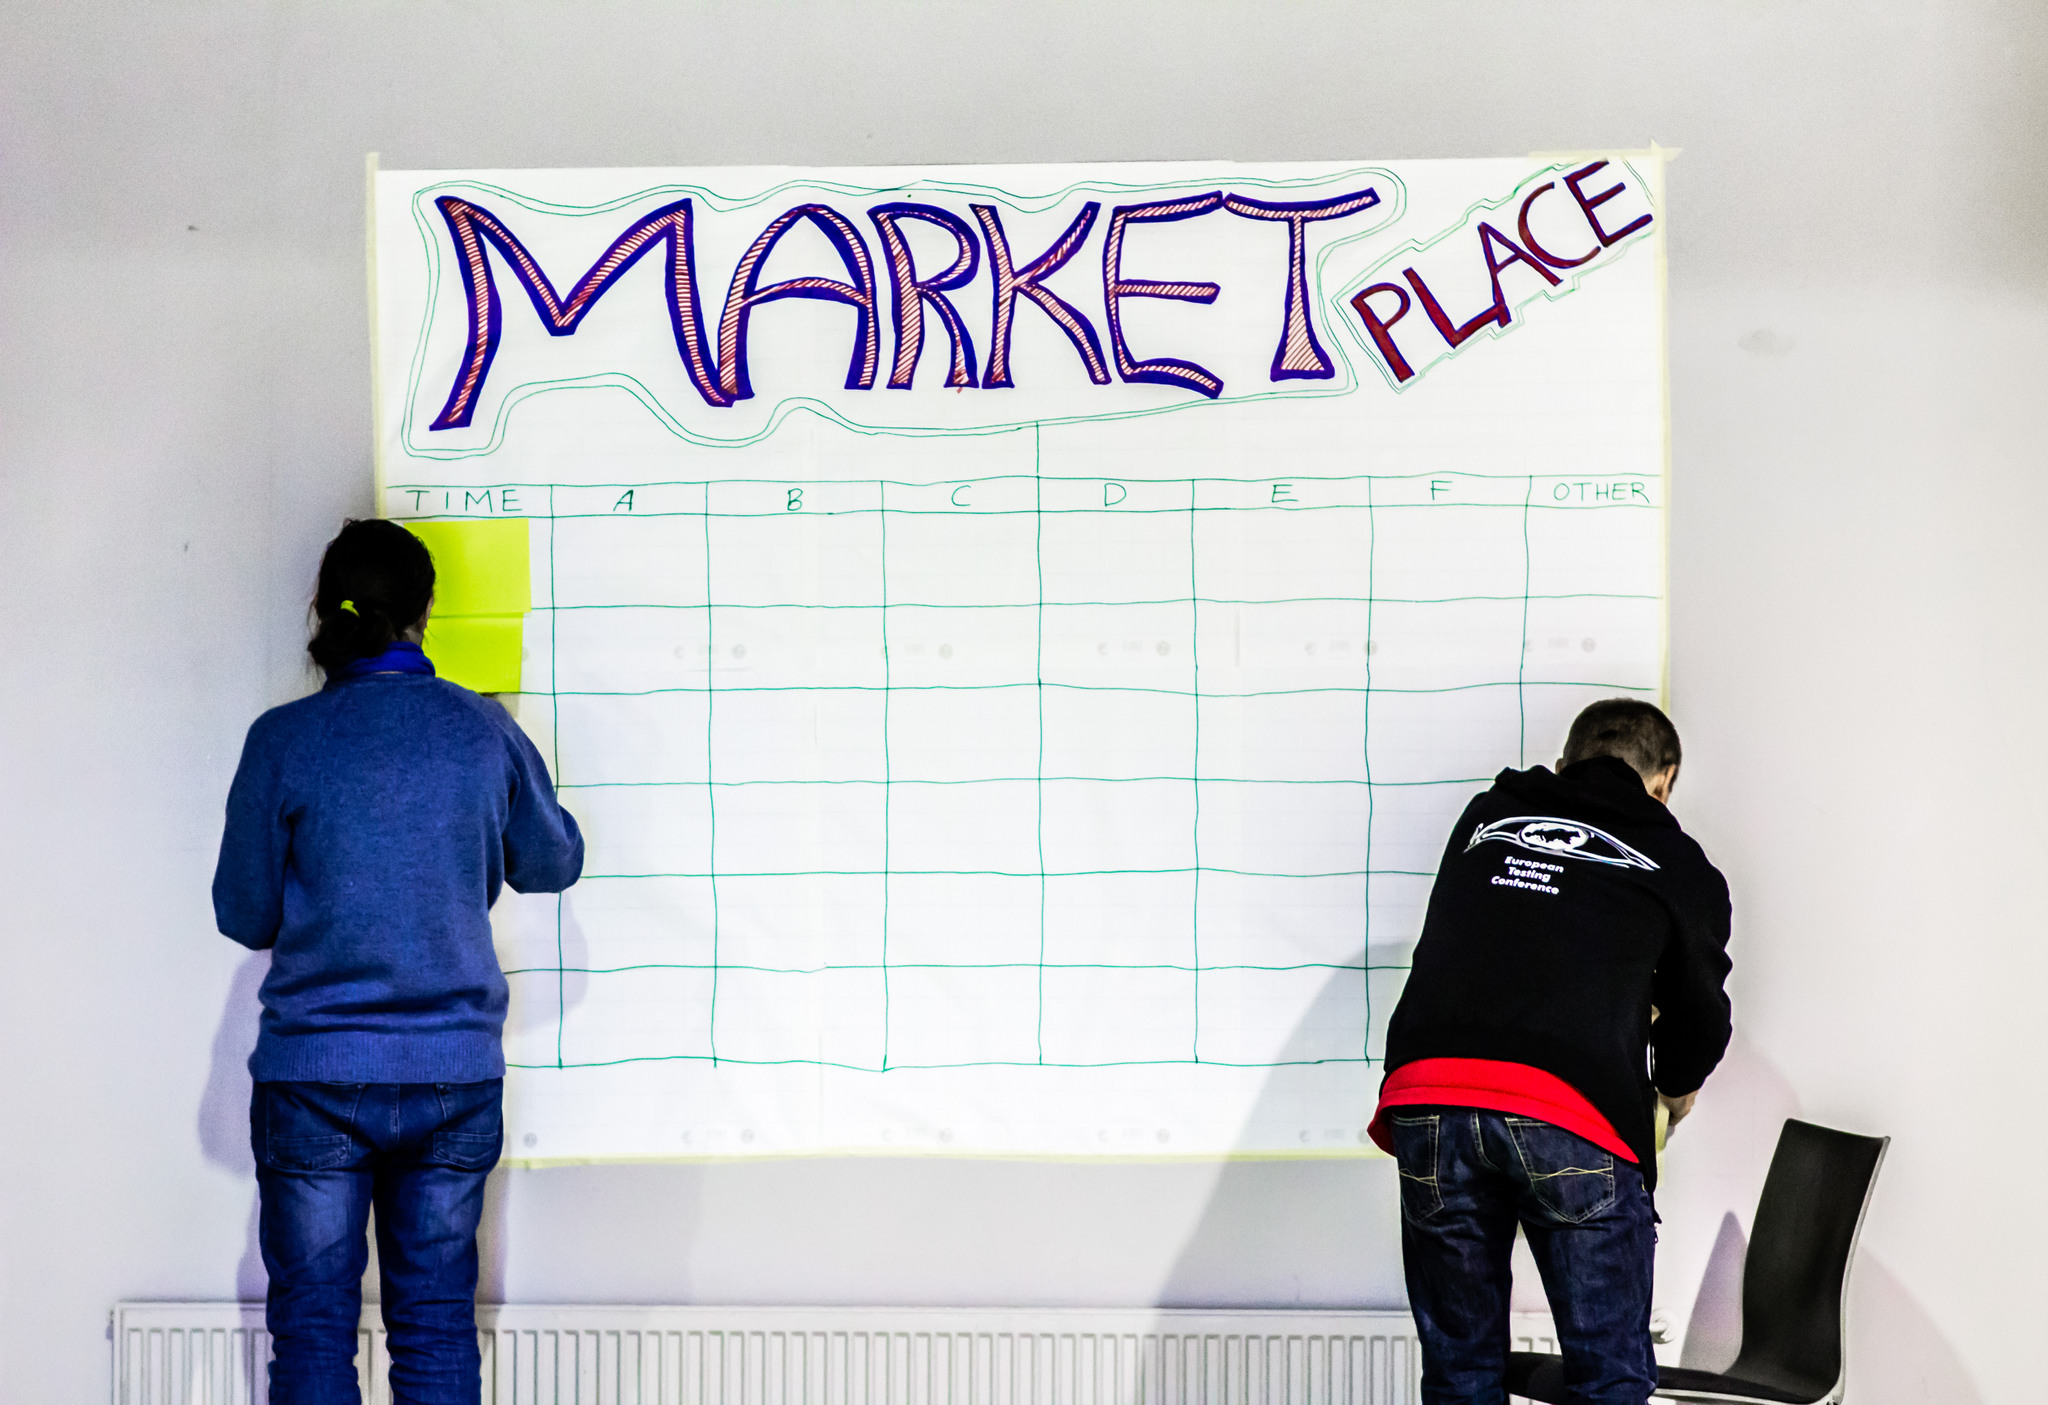 MARKET PLACE
TIME A B C D E F OTHER
European
Testing
Conference